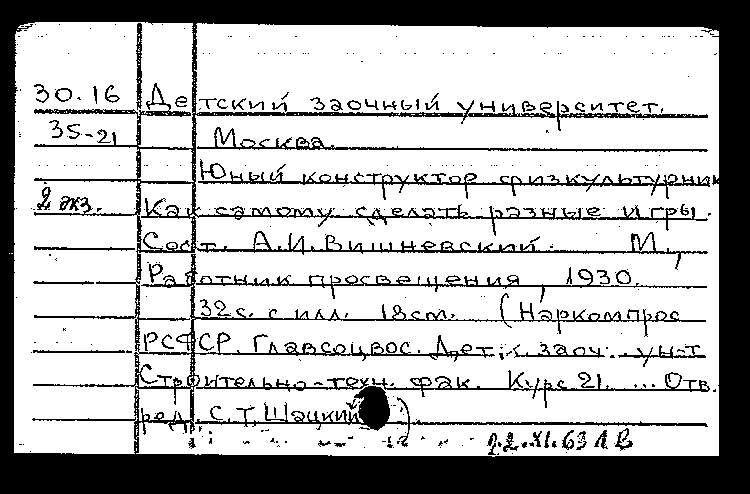 30.16 Детский заочный университет.
35-21 Москва.
Юный конструктор физкультурник
2 экз. Как самому сделать разные игры.
Сост. А.И.Вишневский. М.,
Работник просвещения, 1930.
32с. с илл. 18см. (Наркомпрос
РСФСР. Главсоцвос. Дет. заоч. ун-т
Строительно-техн. фак. Курс 21. ... Отв.
ред. С.Т. Шацкий).
22.XI.63 1 В